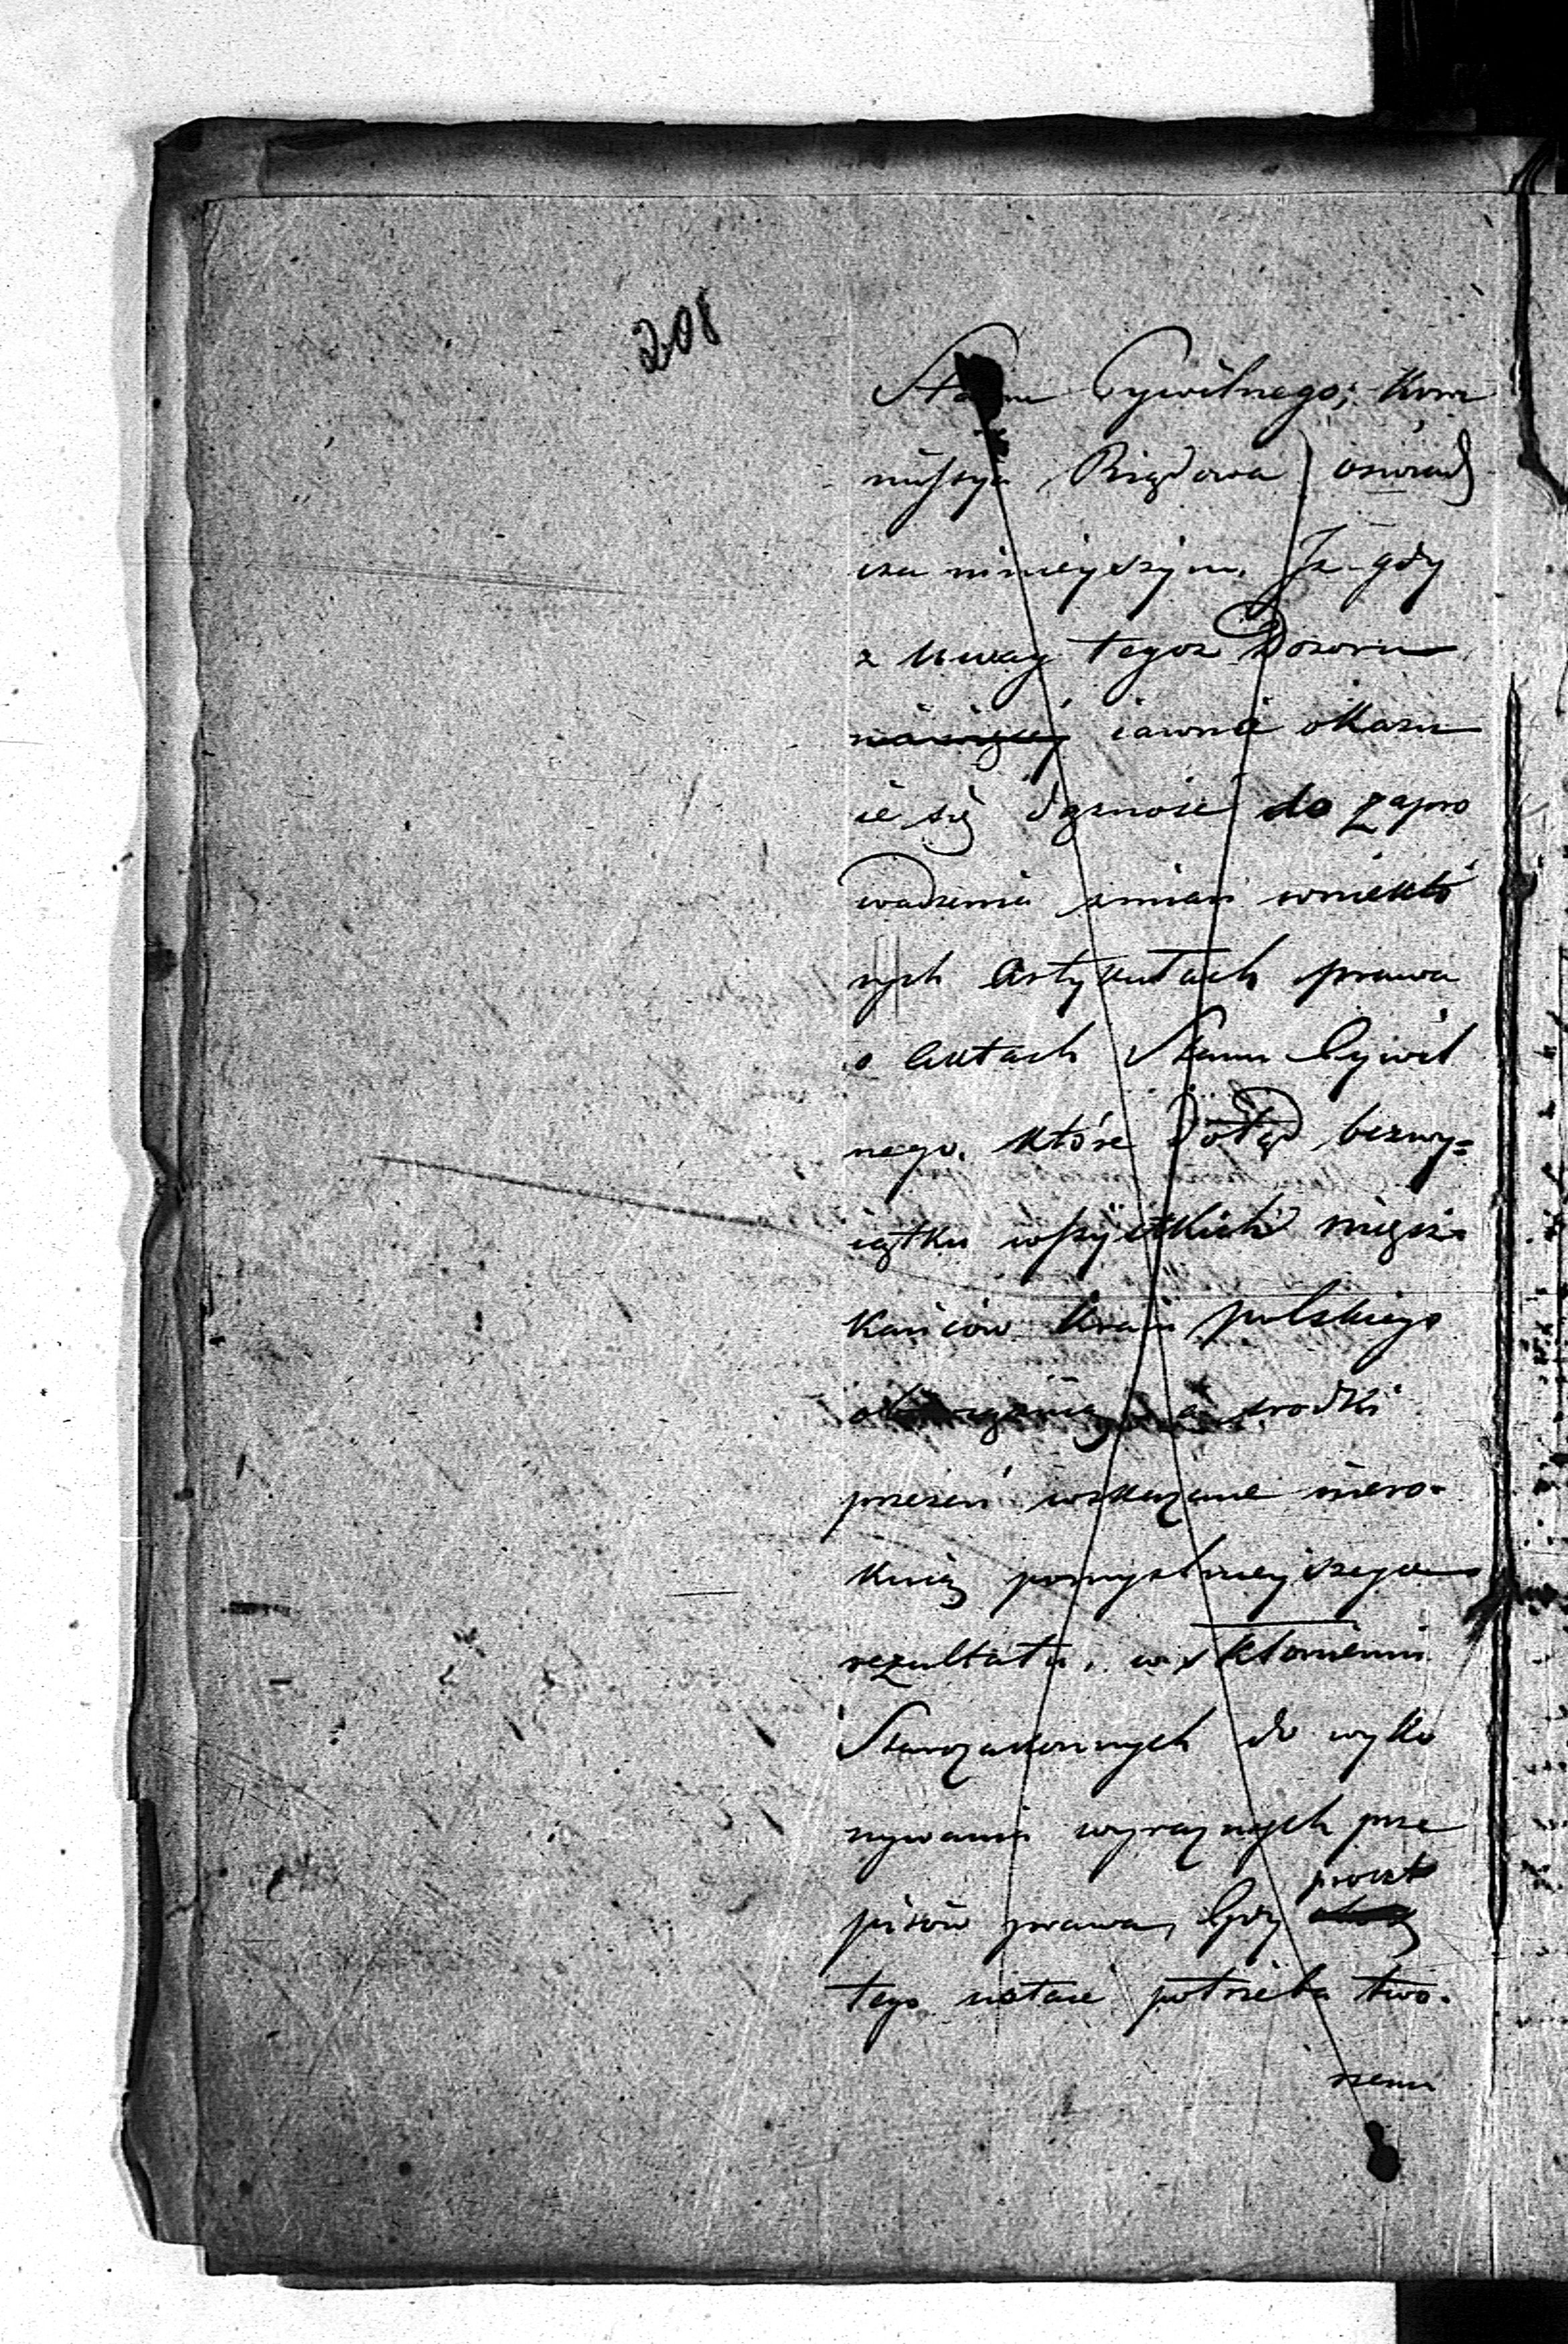 208
Stanu Cywilnego; Kom
missya Rządowa oswiad
cza ninieyszym. Iz gdy
z uwag tegoz Dozoru
iawnie okazu
ie się dązność do zapro
wadzenia zmian wniektó
rych Artykułach prawa
o Aktach Stanu Cywil
nego, które dotąd bezwy=
iątku wszystkich miesz=
kańców Kraiu polskiego
obowięzuią, a srodki
przezeń wskazane niero-
kuią pomyslnieyszego
rezultatu, w skłonieniu
Starozakonnych do wyko
nywania wyraznych prze
pisów prawa, Gdy procz
tego ustaie potrzeba two-
rzenia